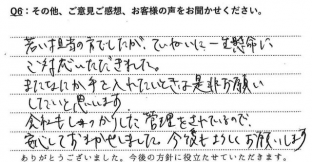 Q6：その他、ご意見ご感想、お客様の声をお聞かせください。
若い担当の方でしたが、ていねいに一生懸命に
ご対応いただきました。
またなにか手に入れたいときは是非お願い
したいと思います。
会社もしっかりした管理をされているので、
安心しておまかせしました。今後もよろしくお願いします
ありがとうございました。今後の方針に役立たせていただきます。